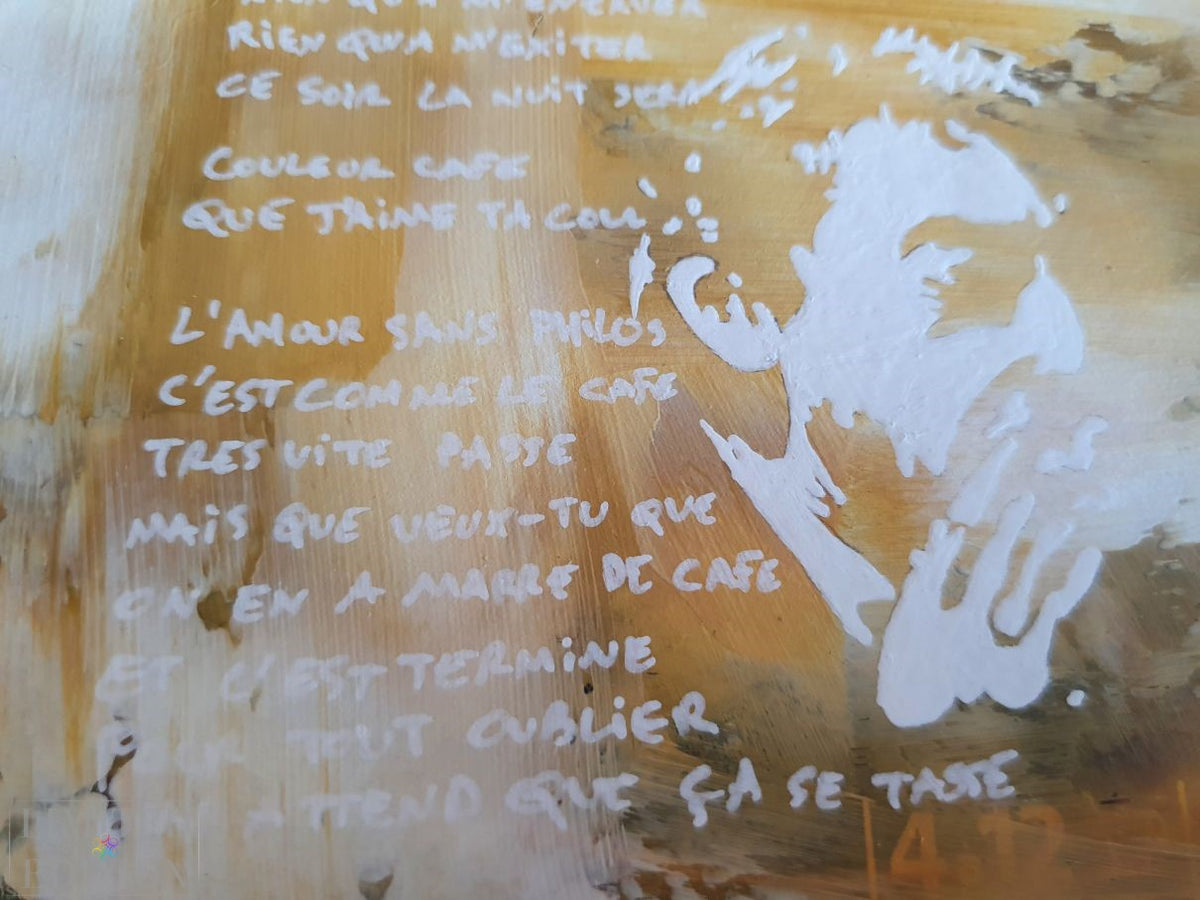 RIEN QU'A M'ENERVER
RIEN QU'A M'EXITER
CE SOIR LA NUIT SERA
COULEUR CAFE
QUE J'AIME TA COUL
L'AMOUR SANS PHILOS
C'EST COMME LE CAFE
TRES VITE PASSE
MAIS QUE VEUX-TU QUE
ON EN A MARRE DE CAFE
ET C'EST TERMINE
POUR TOUT OUBLIER
ON ATTEND QUE ÇA SE TASSE
4.12